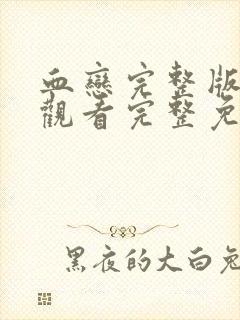 血戀完整版
觀看完整免
黑夜的大白兔